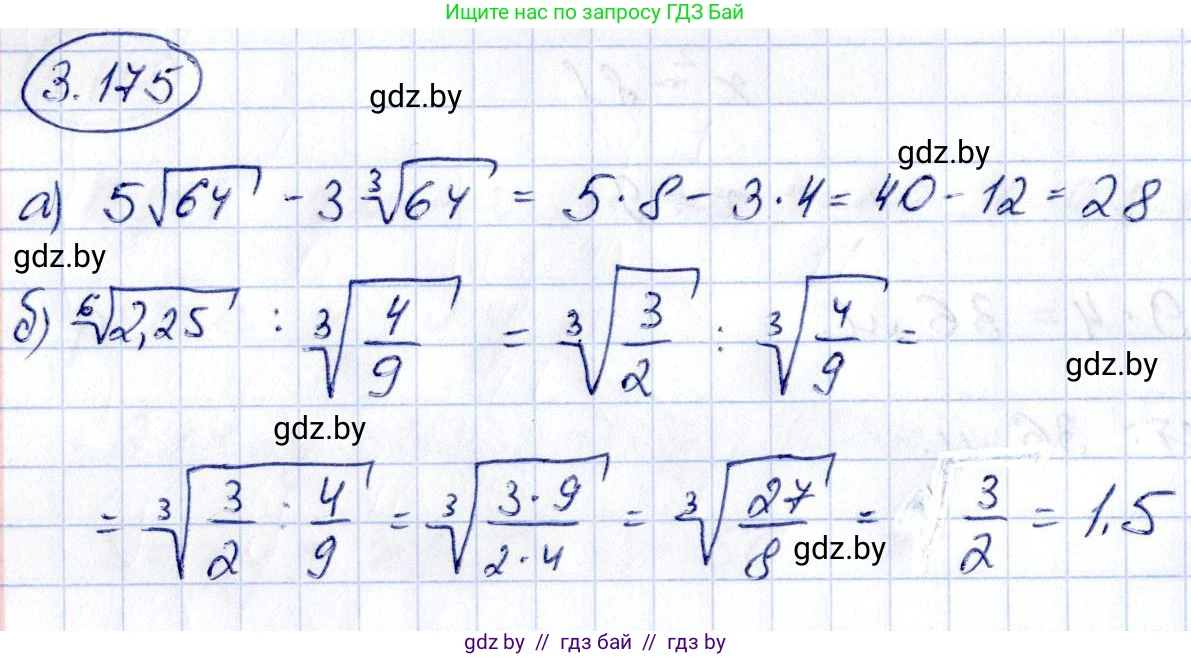 Ищите нас по запросу ГДЗ Бай
3.175
gdz.by
gdz.by
а) 5√64 - 3∛64 = 5·8 - 3·4 = 40 - 12 = 28
gdz.by
б) ⁶√2,25 : ∛(4/9) = ∛(3/2) : ∛(4/9) =
gdz.by
gdz.by
= ∛(3/2 : 4/9) = ∛((3·9)/(2·4)) = ∛(27/8) = 3/2 = 1,5
gdz.by
gdz by // гдз бай // гдз by